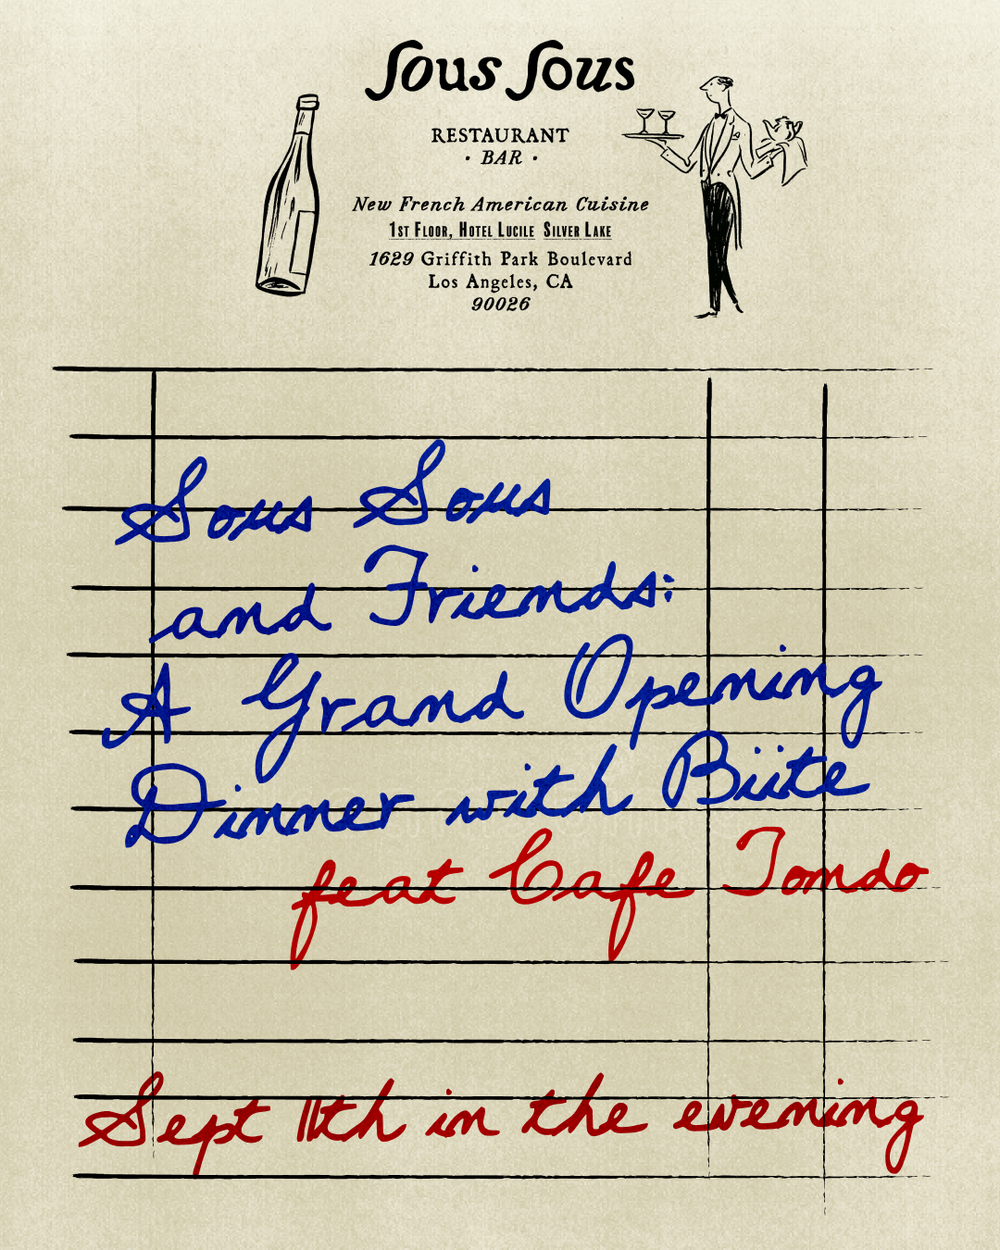 Sous Sous
RESTAURANT
· BAR ·
New French American Cuisine
1st Floor, Hotel Lucile Silver Lake
1629 Griffith Park Boulevard
Los Angeles, CA
90026
Sous Sous
and Friends:
A Grand Opening
Dinner with Biite
feat Cafe Tondo
Sept 11th in the evening